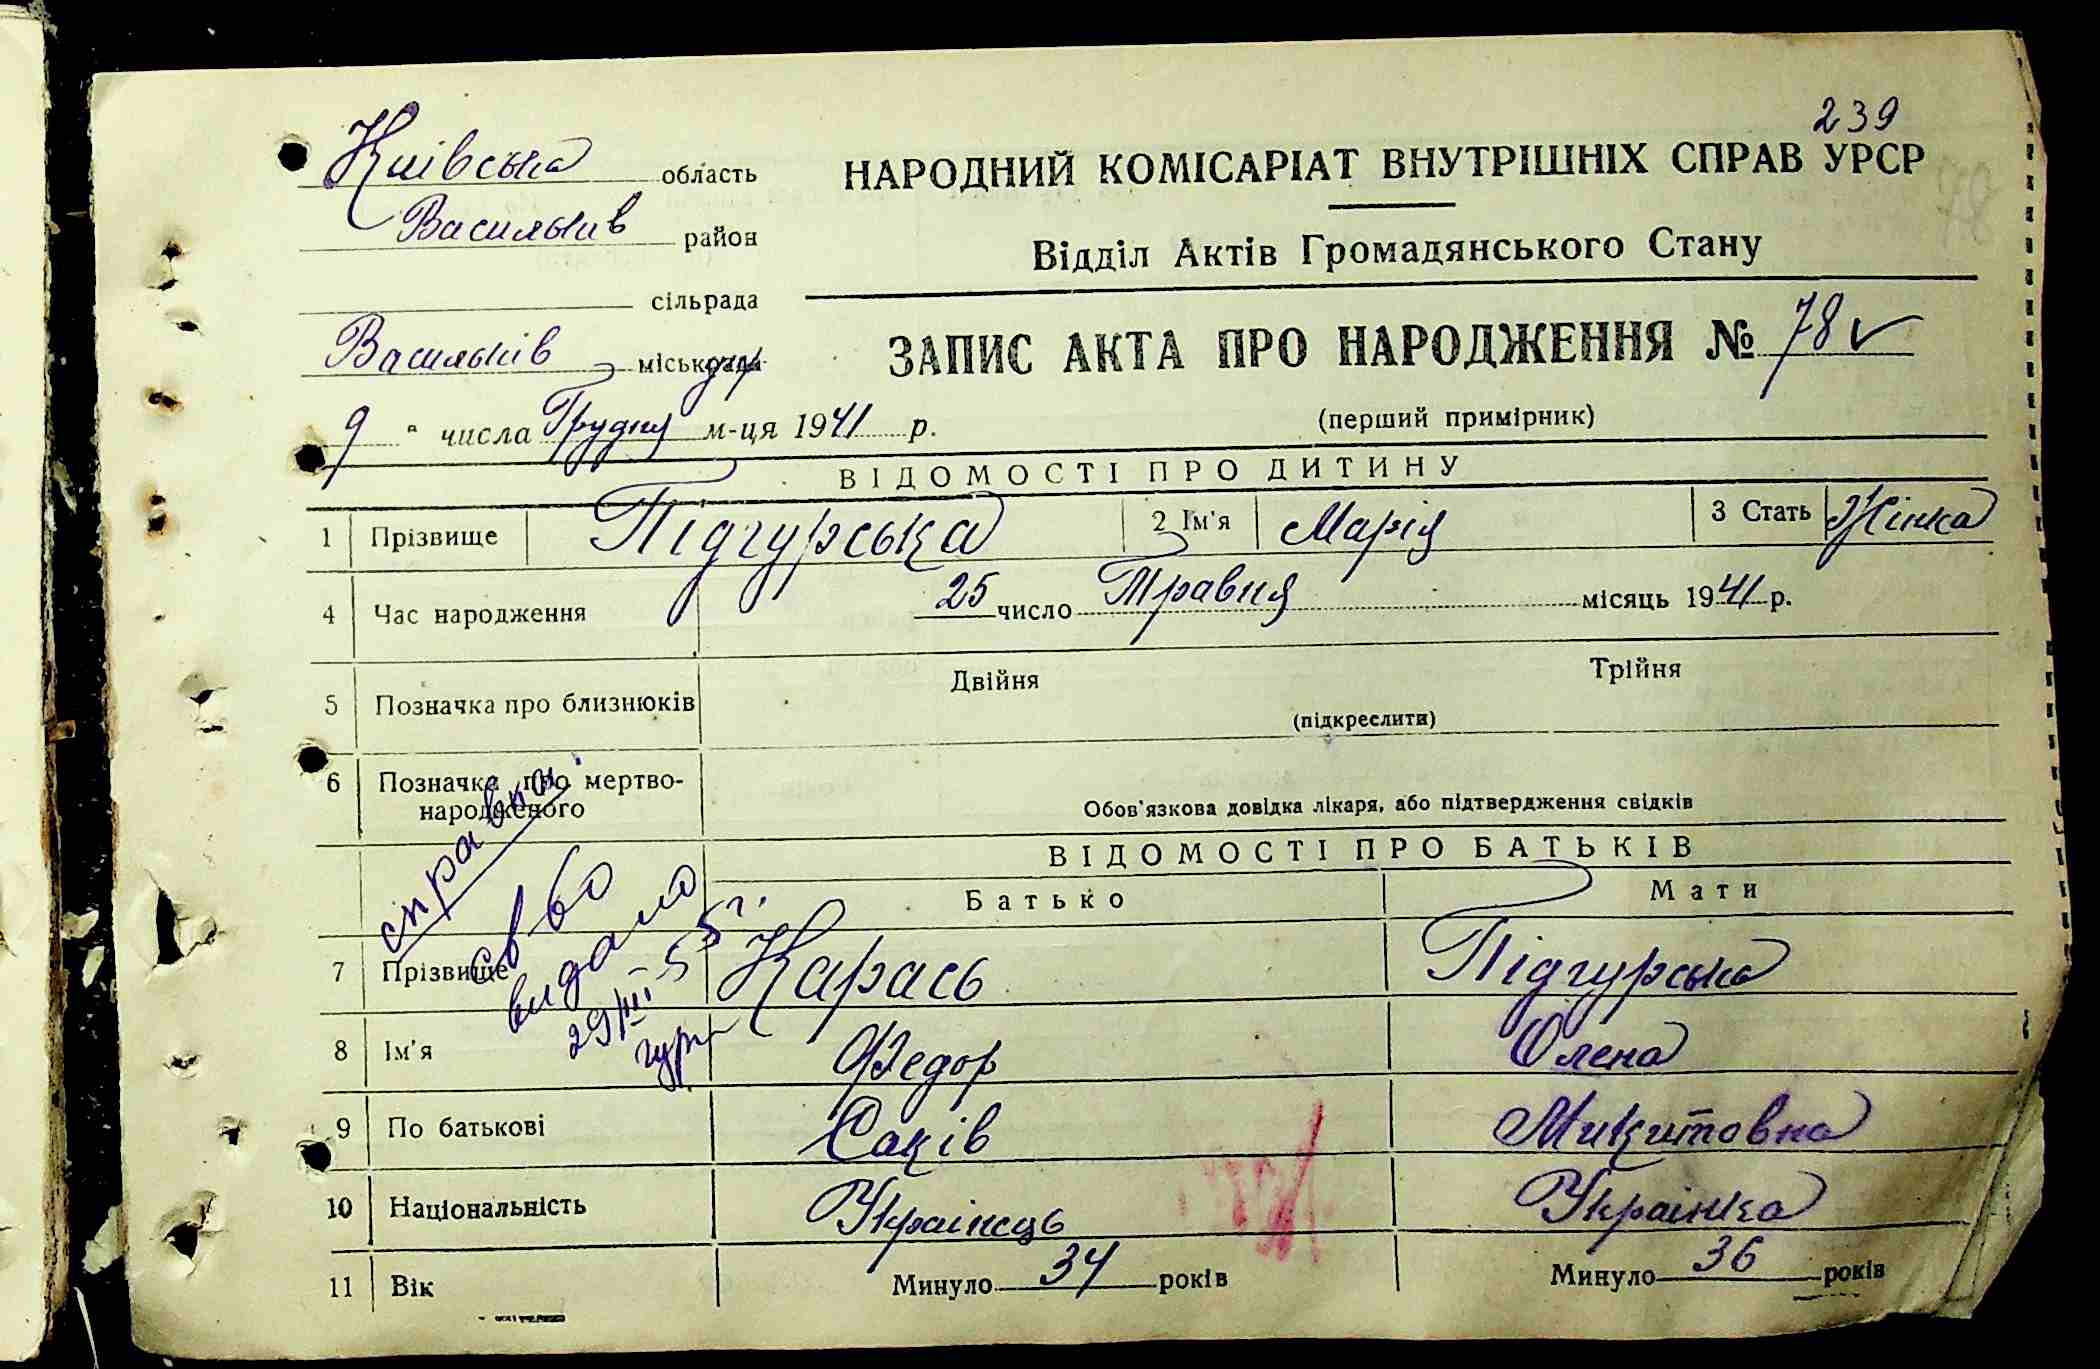 239
Київська область
НАРОДНИЙ КОМІСАРІАТ ВНУТРІШНІХ СПРАВ УРСР
Васильків район
Відділ Актів Громадянського Стану
сільрада
Васильків міськрада
ЗАПИС АКТА ПРО НАРОДЖЕННЯ № 78
9 " числа Грудня м-ця 1941 р.
(перший примірник)
ВІДОМОСТІ ПРО ДИТИНУ
1 Прізвище Підгурська 2 Ім'я Марія 3 Стать Жінка
4 Час народження 25 число Травня місяць 1941 р.
5 Позначка про близнюків Двійня Трійня
(підкреслити)
6 Позначка про мертво-
народженого
Обов'язкова довідка лікаря, або підтвердження свідків
ВІДОМОСТІ ПРО БАТЬКІВ
Батько Мати
справка
св во
видано
29/III-55 г.
7 Прізвище Карась Підгурська
8 Ім'я Федор Олена
9 По батькові Саків Микитовна
10 Національність Українець Українка
11 Вік Минуло 34 років Минуло 36 років